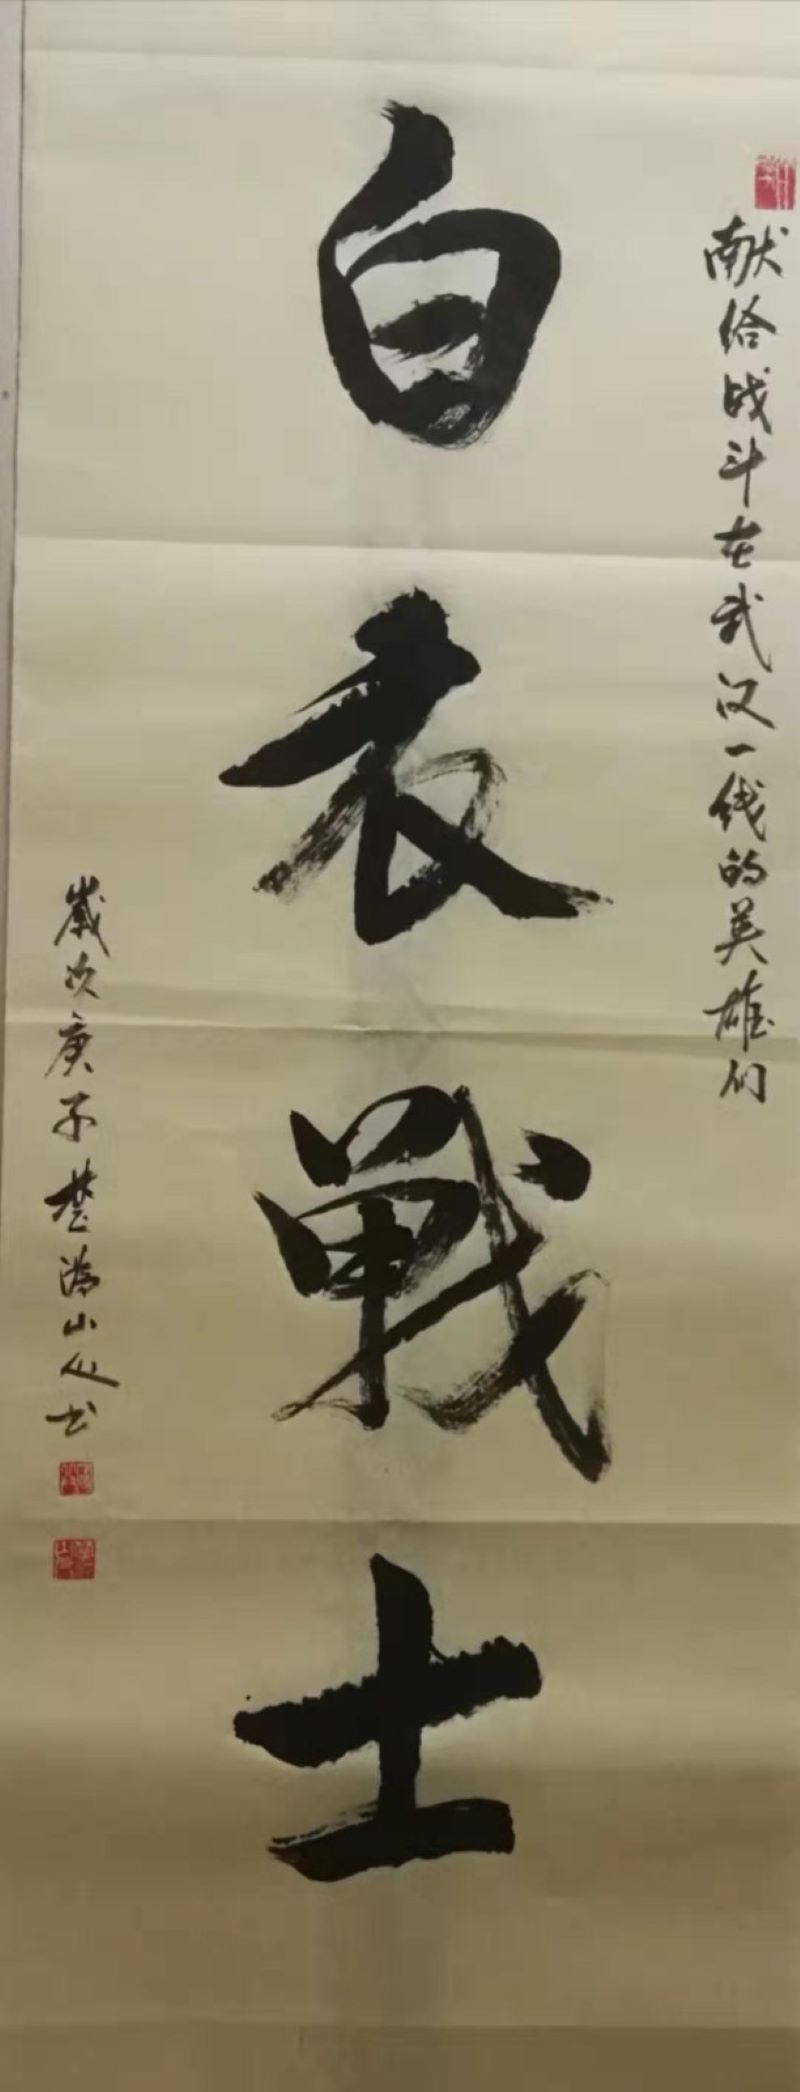 献给战斗在武汉一线的英雄们
白衣戰士
歲次庚子楚 山人书